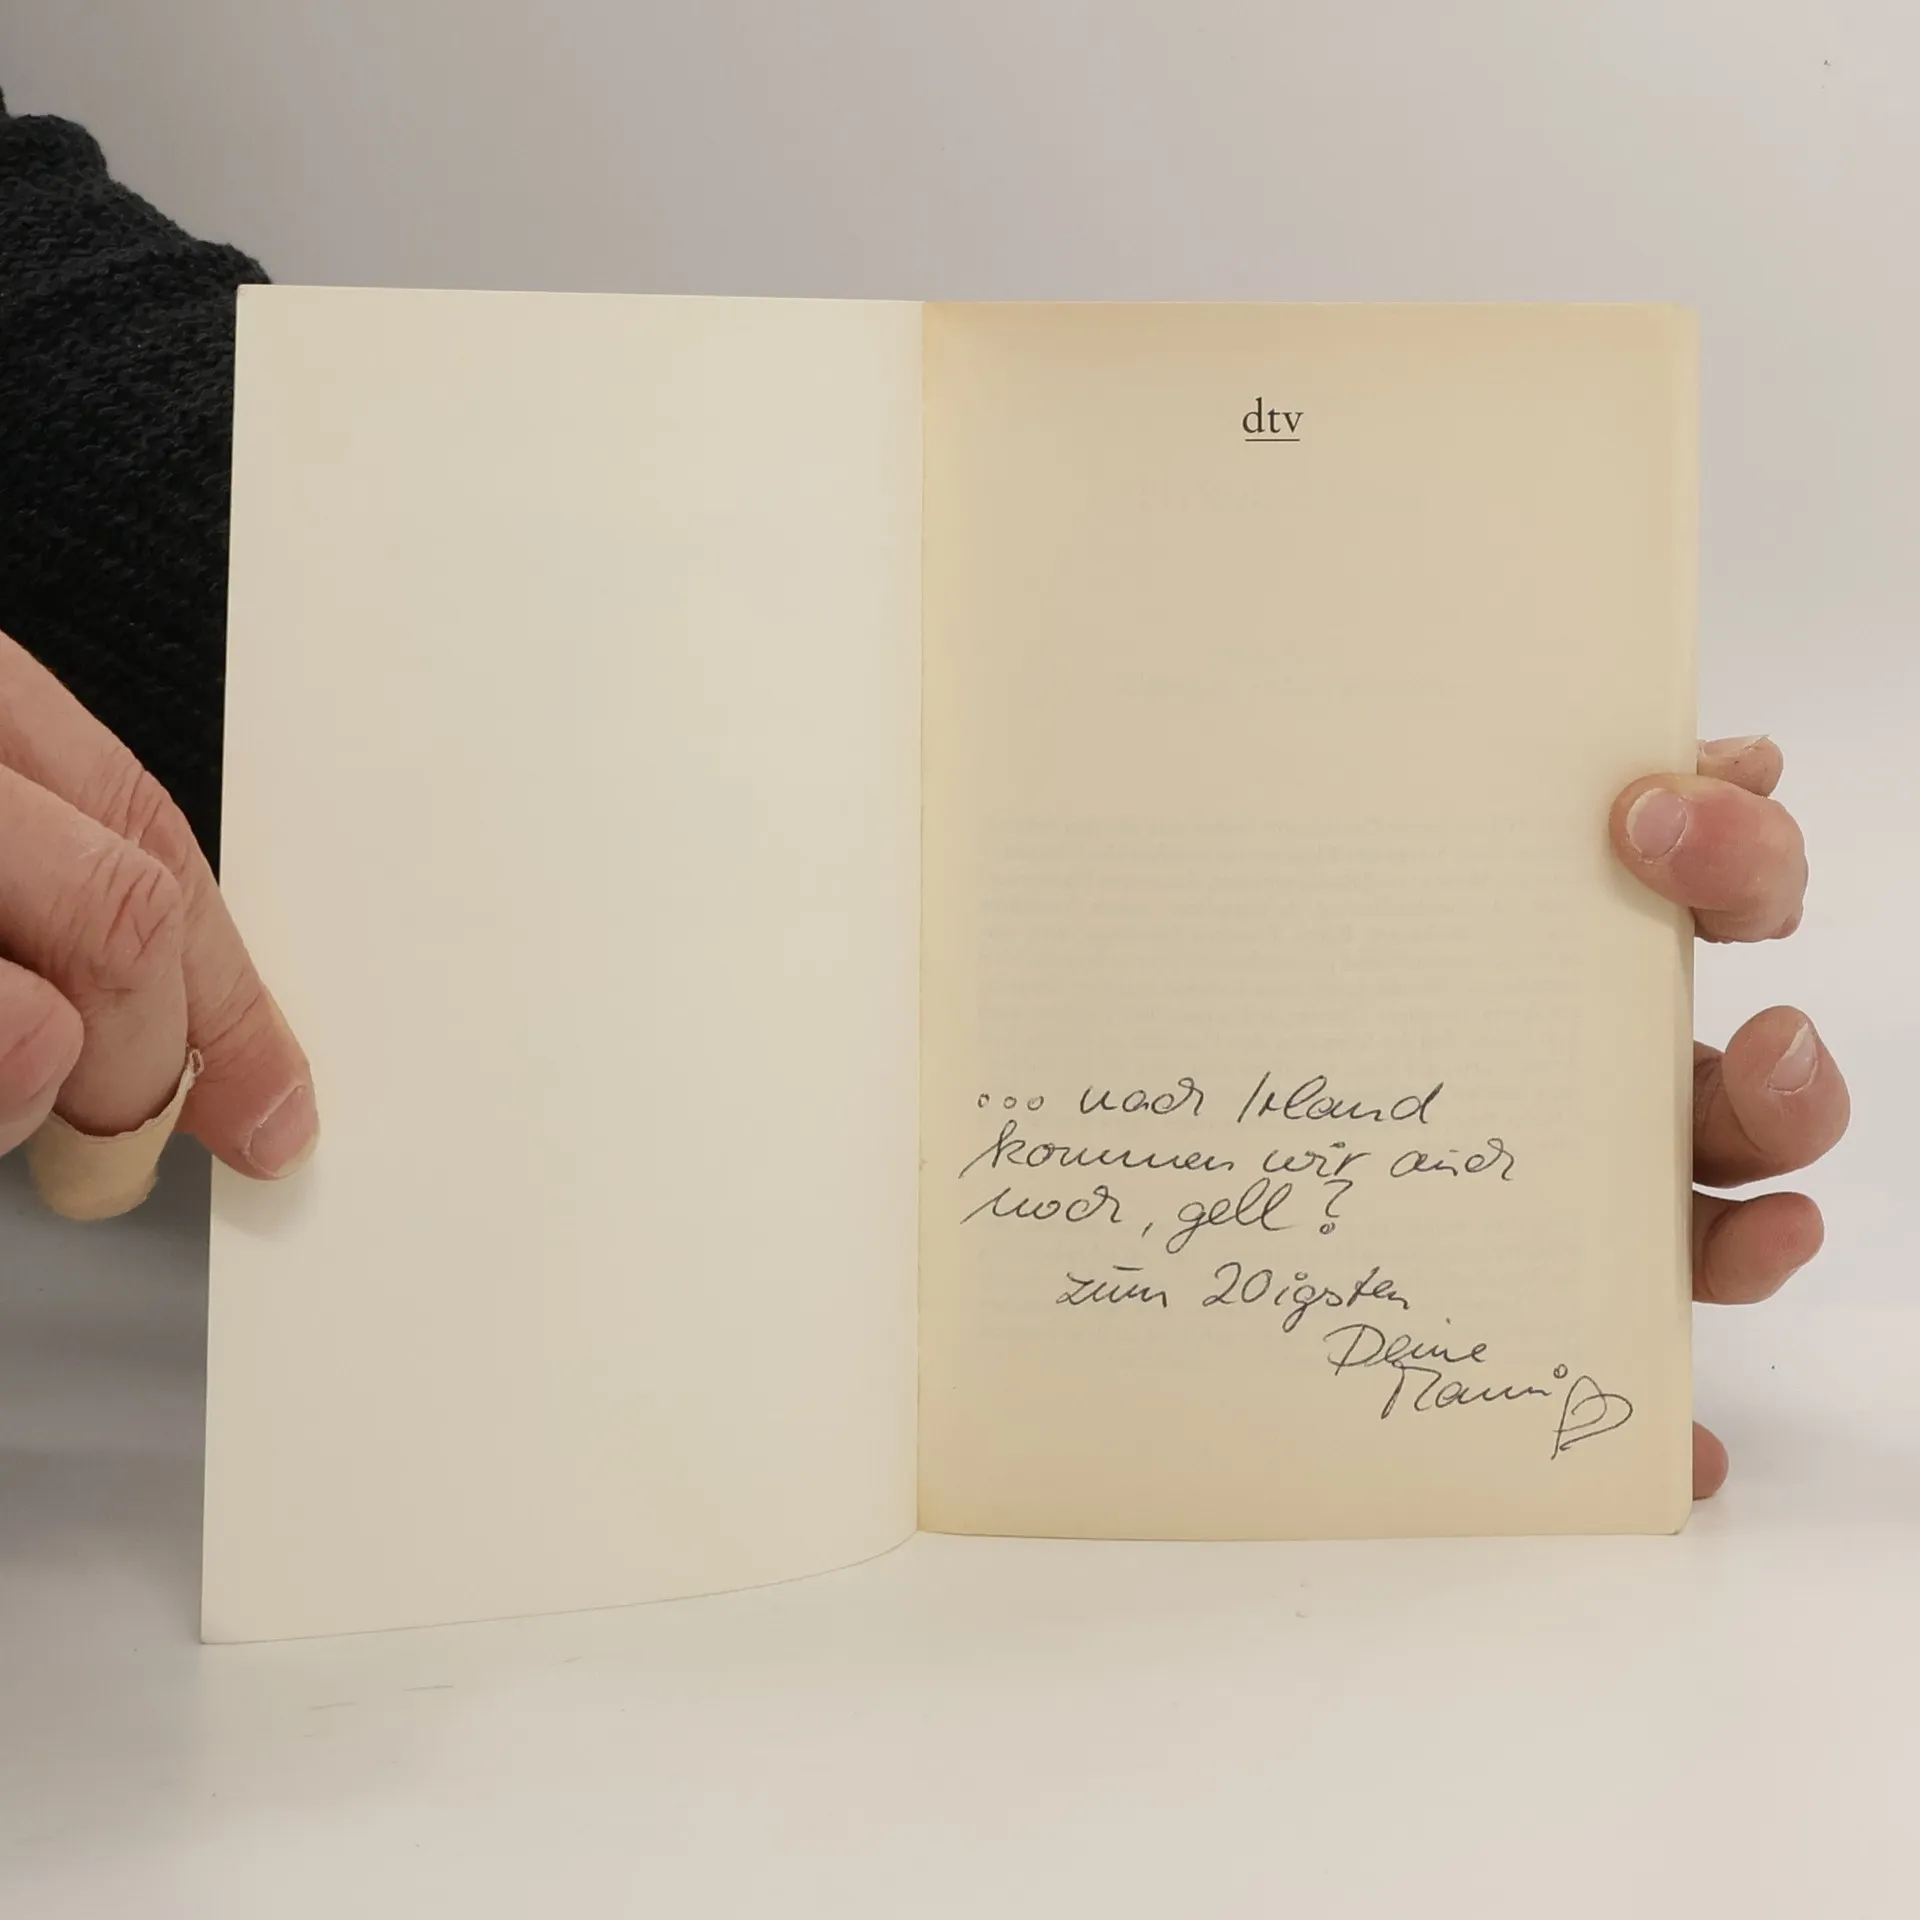 dtv
... nach Irland
kommen wir auch
noch, gell?
zum 20igsten
Deine
Mami